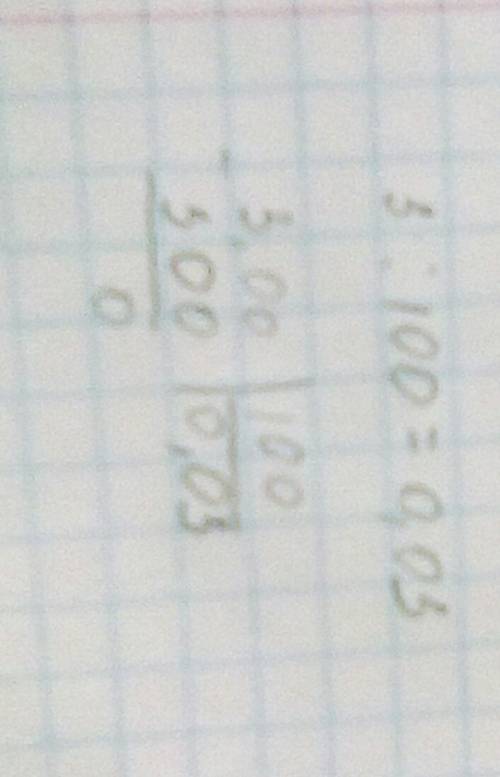 3 : 100 = 0,03
3,00 | 100
300 | 0,03
0